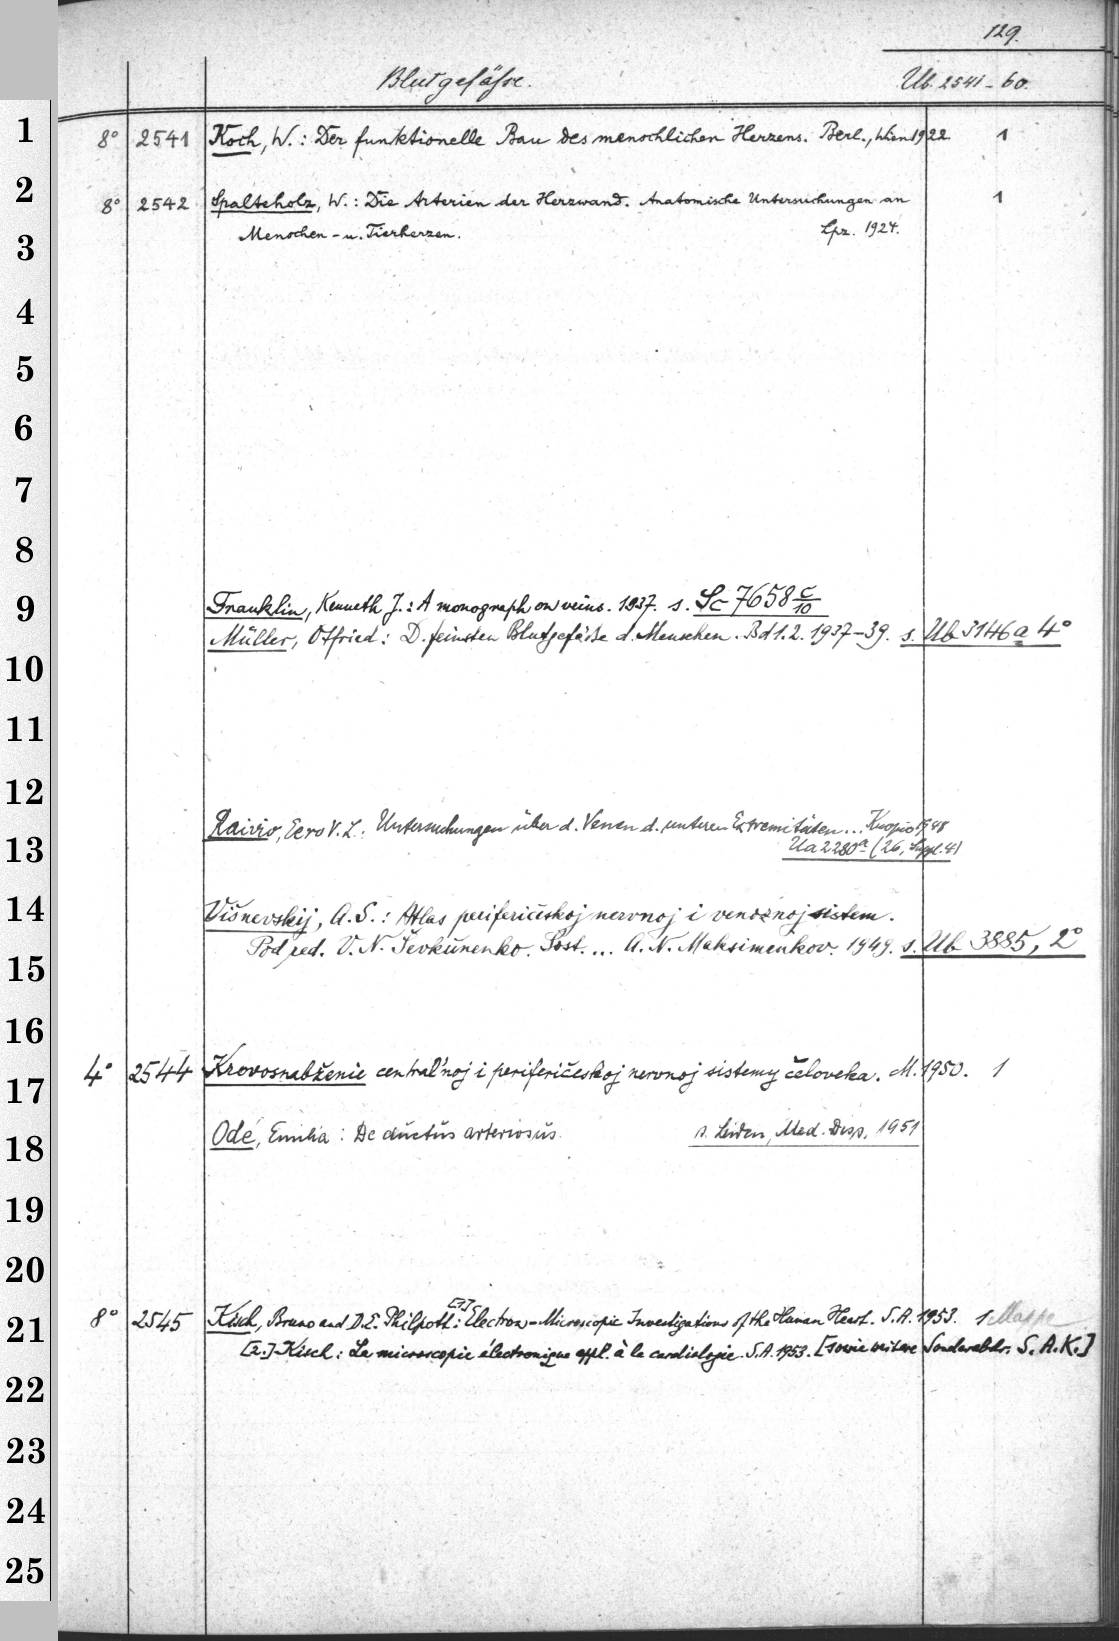 129.
Blutgefäße. Ub 2541-60.
1 8° 2541 Koch, W.: Der funktionelle Bau des menschlichen Herzens. Berl., Wien 1922 1
2 8° 2542 Spalteholz, W.: Die Arterien der Herzwand. Anatomische Untersuchungen an 1
3 Menschen- u. Tierherzen. Lpz. 1924.
4
5
6
7
8
9 Franklin, Kenneth J.: A monograph on veins. 1937. s. Sc 7658 c/10
Müller, Otfried: D. feinsten Blutgefäße d. Menschen. Bd 1.2. 1937-39. s. Ub 3146a 4°
10
11
12
Raivio, Eero V. L.: Untersuchungen über d. Venen d. unteren Extremitäten... Kuopio 1948
13 Ua 2280a (26, Suppl. 4)
14 Višnevskij, A. S.: Atlas periferičeskoj nervnoj i venoznoj sistem.
Pod red. V. N. Ševkunenko. Sost. ... A. N. Maksimenkov. 1949. s. Ub 3885, 2°
15
16
17 4° 2544 Krovosnabženie central'noj i periferičeskoj nervnoj sistemy čeloveka. M. 1950. 1
18 Odé, Emilia: De ductus arteriosus. s. Leiden, Med. Diss. 1951
19
20
21 8° 2545 Kisch, Bruno and D.E. Philpott: [1.] Electron-Microscopic Investigations of the Human Heart. S.A. 1953. 1 Mappe
[2.] Kisch: La microscopie électronique appl. à la cardiologie. S.A. 1953. [sowie weitere Sonderabdr. S.A.K.]
22
23
24
25